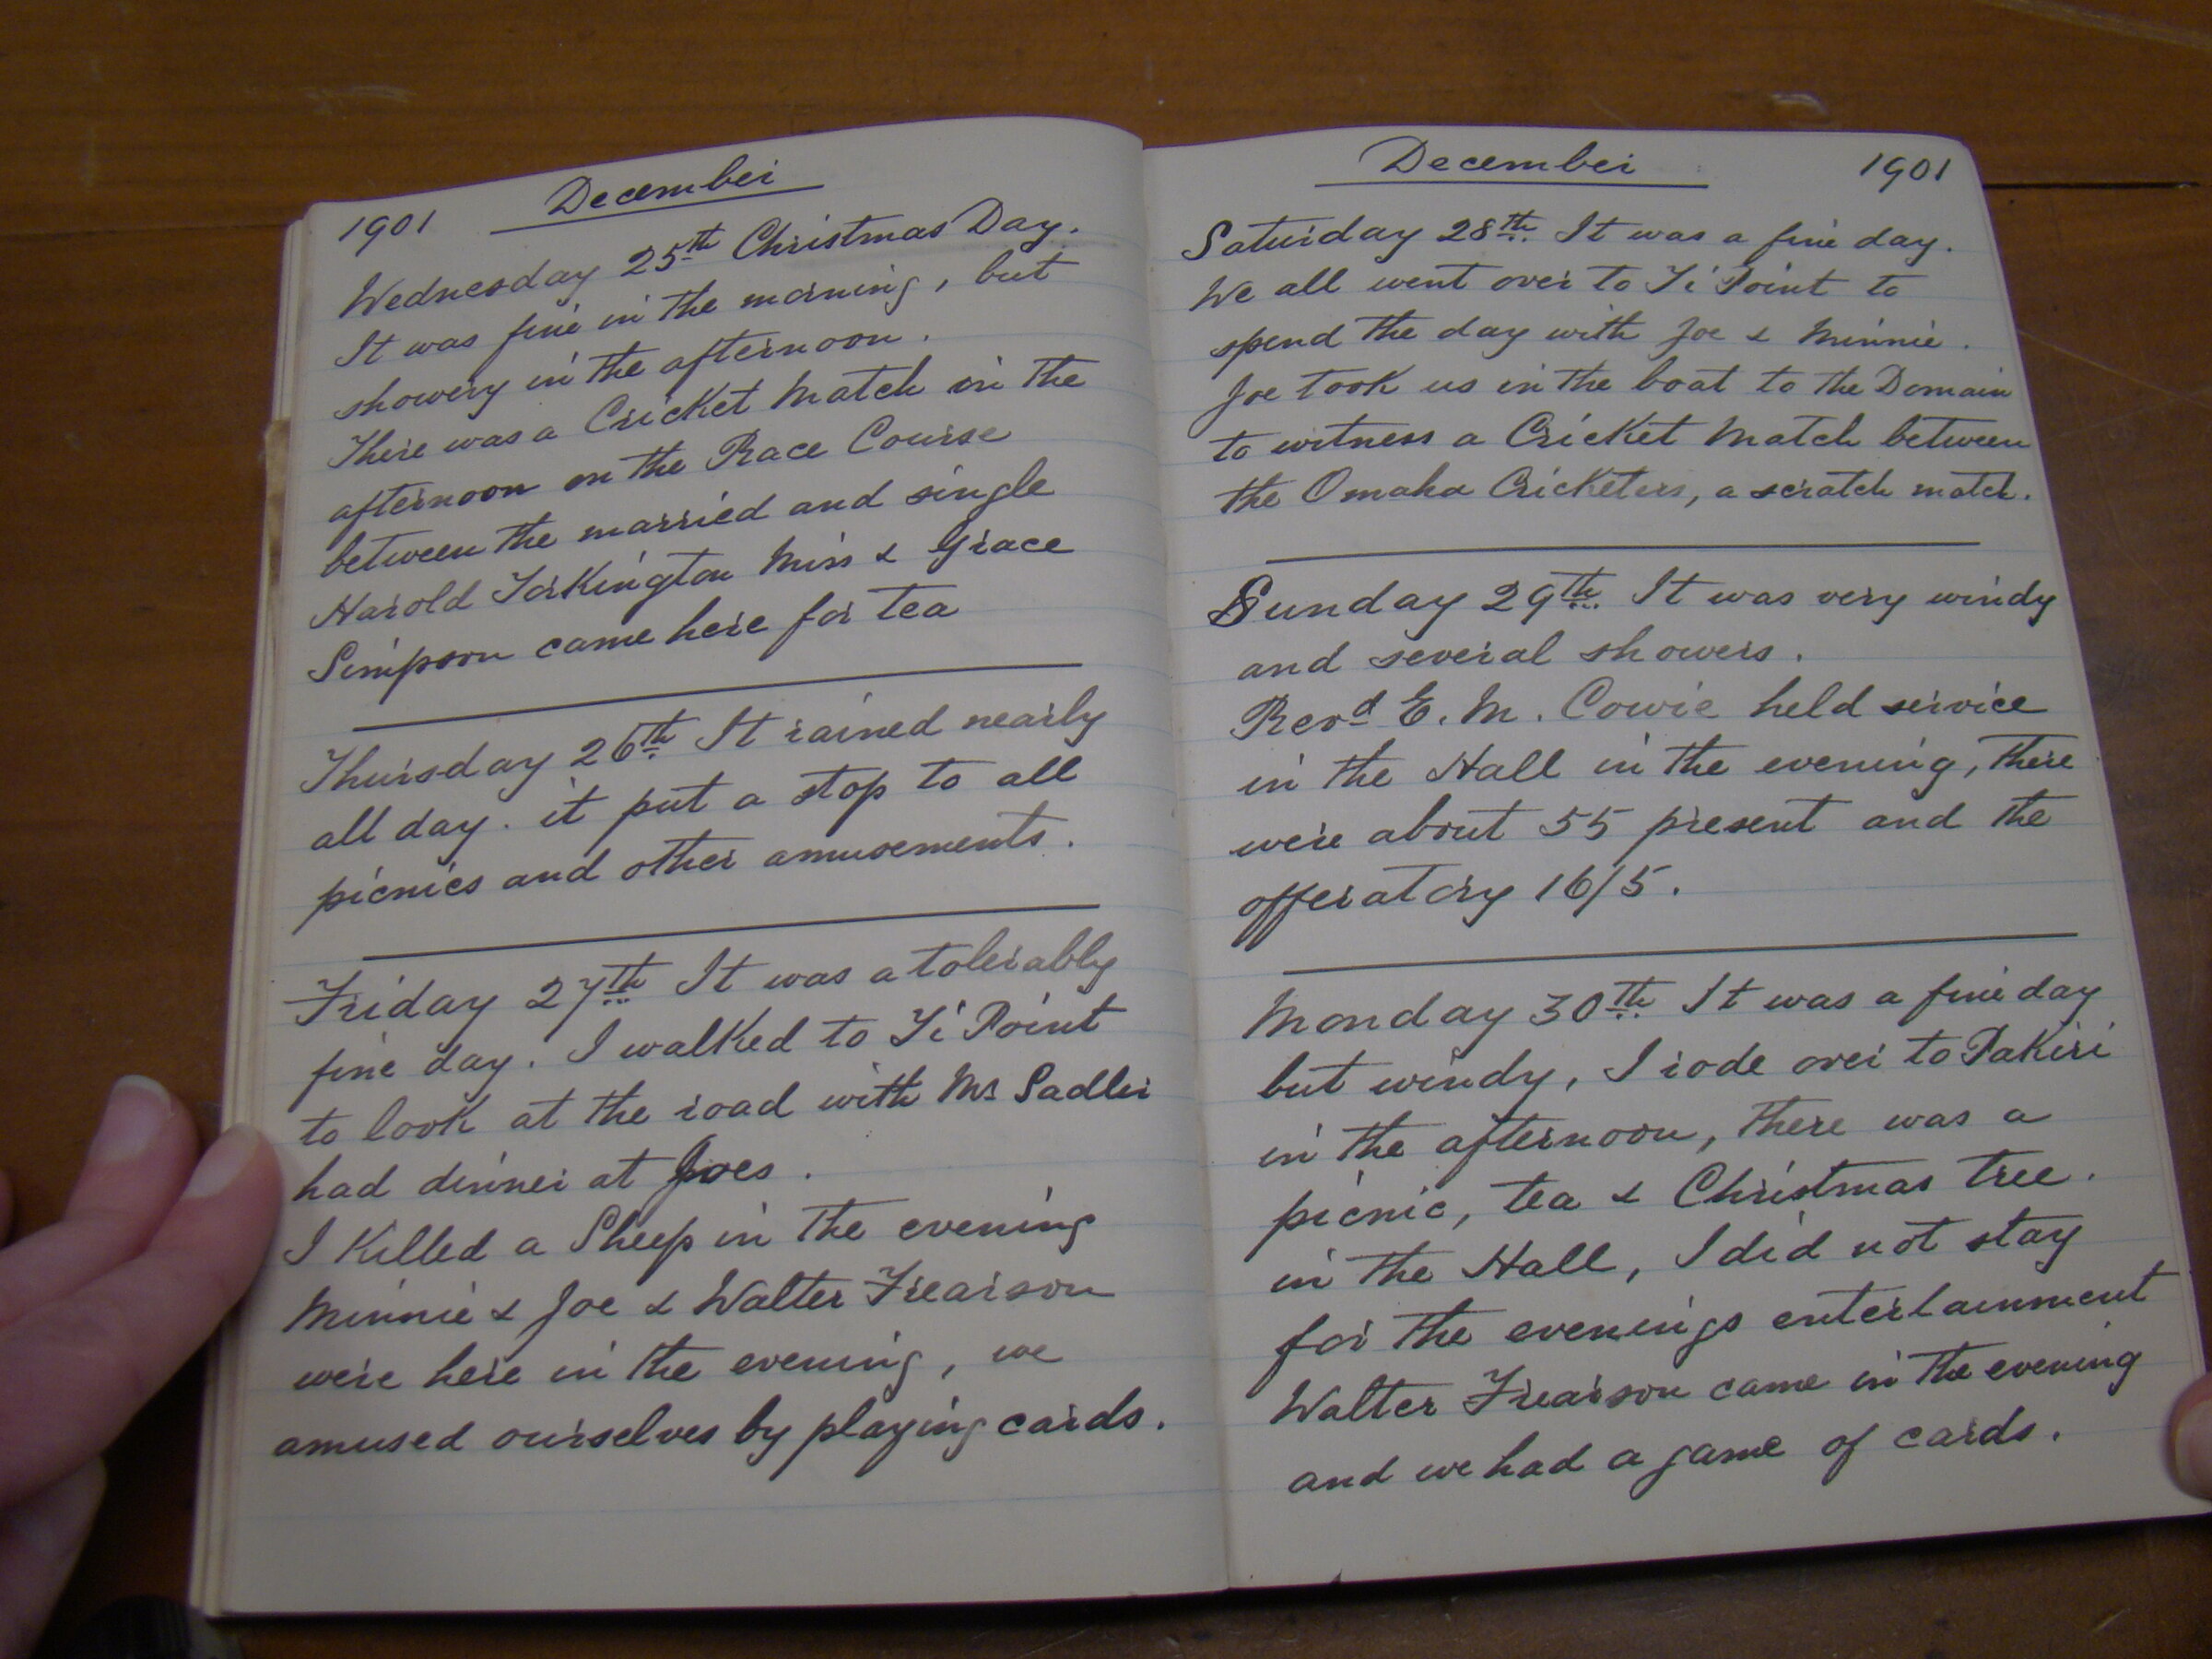 1901 December
Wednesday 25th Christmas Day.
It was fine in the morning, but
showery in the afternoon.
There was a Cricket Match in the
afternoon on the Race Course
between the married and single
Harold Torkington Miss & Grace
Simpson came here for tea
Thursday 26th It rained nearly
all day. it put a stop to all
picnics and other amusements.
Friday 27th It was a tolerably
fine day. I walked to Ti Point
to look at the road with Mr Sadler
had dinner at Joes.
I Killed a Sheep in the evening
Minnie & Joe & Walter Frearson
were here in the evening, we
amused ourselves by playing cards.
December 1901
Saturday 28th It was a fine day.
We all went over to Ti Point to
spend the day with Joe & Minnie.
Joe took us in the boat to the Domain
to witness a Cricket Match between
the Omaha Cricketers, a scratch match.
Sunday 29th It was very windy
and several showers.
Revd E. M. Cowie held service
in the Hall in the evening, there
were about 55 present and the
offeratory 16/5.
Monday 30th It was a fine day
but windy, I rode over to Pakiri
in the afternoon, there was a
picnic, tea & Christmas tree.
in the Hall, I did not stay
for the evenings entertainment
Walter Frearson came in the evening
and we had a game of cards.